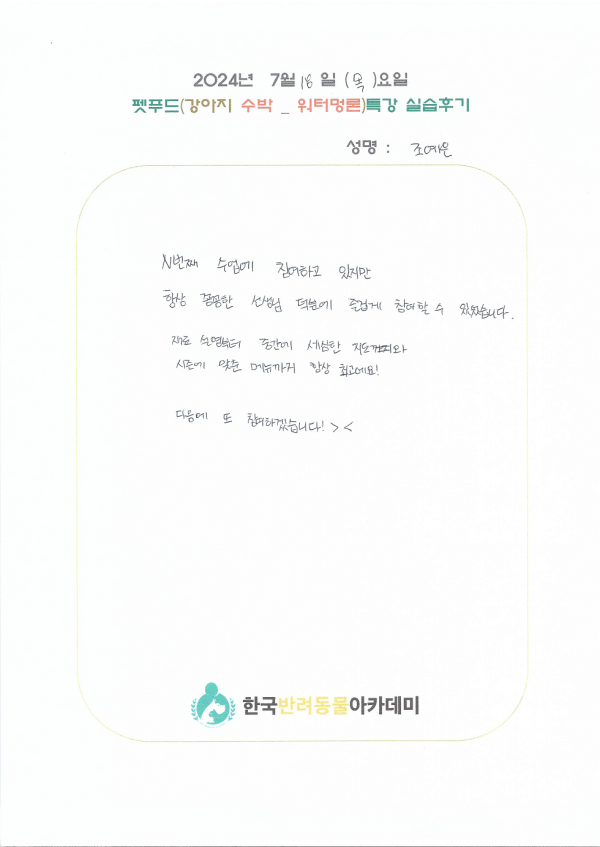 2024년 7월 18일 (목)요일
펫푸드(강아지 수박 _ 워터멍론)특강 실습후기
성명 : 조예은
N번째 수업에 참여하고 있지만
항상 꼼꼼한 선생님 덕분에 즐겁게 참여할 수 있었습니다.
재료 손염부터 중간에 세심한 지도까지와
시즌에 맞춘 메뉴까지 항상 최고에요!
다음에 또 참여하겠습니다! > <
한국반려동물아카데미